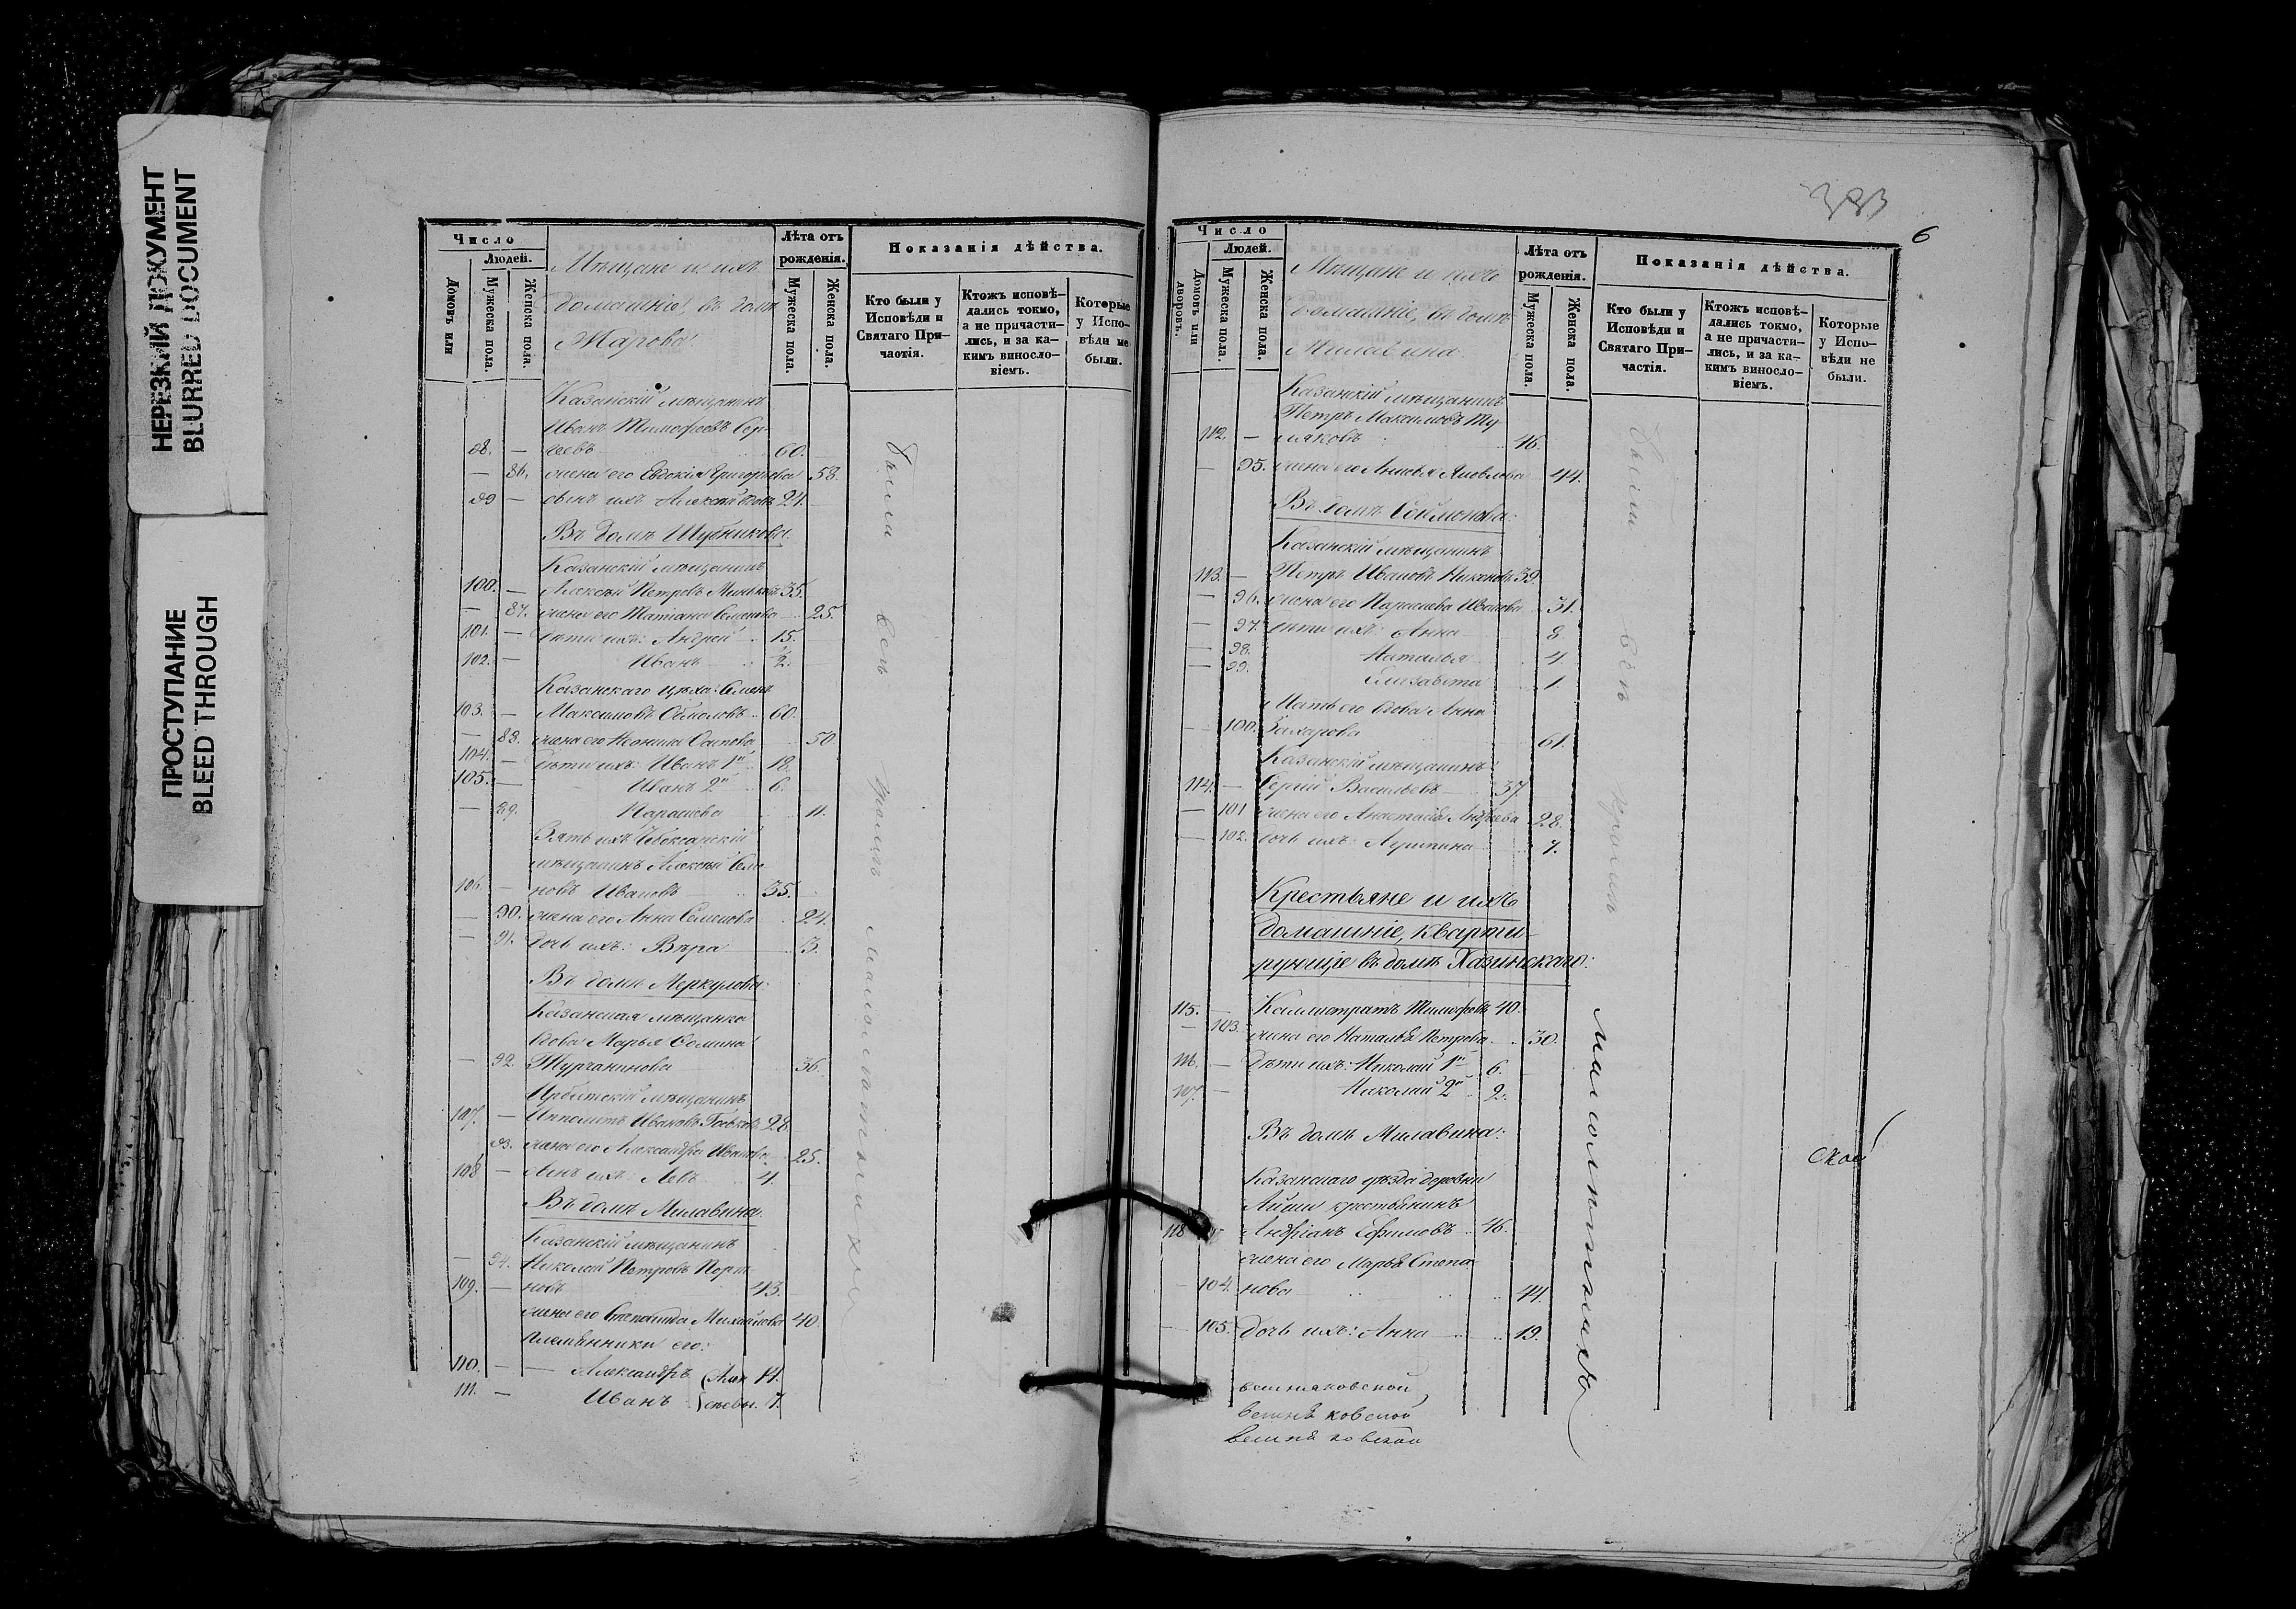 НЕРЕЗКИЙ ДОКУМЕНТ
BLURRED DOCUMENT
ПРОСТУПАНИЕ
BLEED THROUGH
Число
Людей.
Домовъ или
Мужеска пола.
Женска пола.
Мѣщане и ихъ
домашніе, въ домѣ
Жарова
Лѣта отъ
рожденія.
Мужеска пола.
Женска пола.
Показанія дѣйства.
Кто были у
Исповѣди и
Святаго При-
частія.
Ктожъ исповѣ-
дались токмо,
а не причасти-
лись, и за ка-
кимъ винросло-
віемъ.
Которые
у Испо-
вѣди не
были.
Казанскій мѣщанинъ
Иванъ Тимофеевъ Сер-
98. — геевъ 60.
— 86. жена его Евдокія Григорьева 58.
99 — сынъ ихъ Алексѣй 24.
Въ домѣ Шубникова
Казанскій мѣщанинъ
100. — Алексѣй Петровъ 35.
— 87. жена его Татіана Семенова 25.
101. — дѣти ихъ: Андрей 15.
102. — Иванъ 2.
Казанскаго цѣха: Семенъ
103. — Максимовъ 60.
— 88. жена его Неонила Осипова 50
104. — дѣти ихъ: Иванъ 1й 18.
105. — Иванъ 2й 6.
— 89. Параскева 11.
Зять ихъ Чебоксарскій
мѣщанинъ Алексѣй Семе
106. — новъ Ивановъ 35.
— 90. жена его Анна Семенова 24.
— 91. дочь ихъ: Вѣра 3.
Въ домѣ Меркулова:
Казанская мѣщанка
вдова Марья Фомина
— 92. Турчанинова 36.
Ирбитскій мѣщанинъ
107. — Ипполитъ Ивановъ 28
93. жена его Александра Иванова 25.
108 — сынъ ихъ Левъ 4.
Въ домѣ Милавина:
Казанскій мѣщанинъ
— 94. Николай Петровъ Порт
109. — новъ 43.
жена его Степанида Михайлова 40.
племянники его:
110. — — Александръ 14.
111. — Иванъ 7.
были всѣ кромѣ малолѣтныхъ
383
6
Число
Людей.
Домовъ или
дворовъ.
Мужеска пола.
Женска пола.
Мѣщане и ихъ
домашніе, въ домѣ
Милавина
Лѣта отъ
рожденія.
Мужеска пола.
Женска пола.
Показанія дѣйства.
Кто были у
Исповѣди и
Святаго При-
частія.
Ктожъ исповѣ-
дались токмо,
а не причасти-
лись, и за ка-
кимъ винросло-
віемъ.
Которые
у Испо-
вѣди не
были.
Казанскій мѣщанинъ
Петръ Максимовъ Ту-
112. — маковъ 46.
— 95. жена его Яковлева 44.
Въ домѣ Соймонова:
Казанскій мѣщанинъ
113. — Петръ Ивановъ Никоновъ 39.
— 96. жена его Параскева Иванова 31.
— 97. дѣти ихъ: Анна 8
— 98. Наталья 4
— 99. Елизавета 1.
Мать его вдова Анна
— 100. Захарова 61.
Казанскій мѣщанинъ
114. — Сергій Васильевъ 37.
— 101 жена его Анастасія Андреева 28.
— 102. дочь ихъ: 7.
Крестьяне и ихъ
домашніе, кварти-
рующіе въ домѣ Хазинскаго:
115. — Каллистратъ Тимофеевъ 40.
— 103. жена его Наталья Петрова 30.
116. — Дѣти ихъ: Николай 1й 6.
117. — Николай 2й 2.
Въ домѣ Милавина:
Казанскаго уѣзда деревни
Айши крестьянинъ
118 Андріанъ Ефимовъ 46.
жена его Марья Степа
— 104. нова 44.
— 105. Дочь ихъ: Анна 19.
были всѣ кромѣ малолѣтныхъ
ской